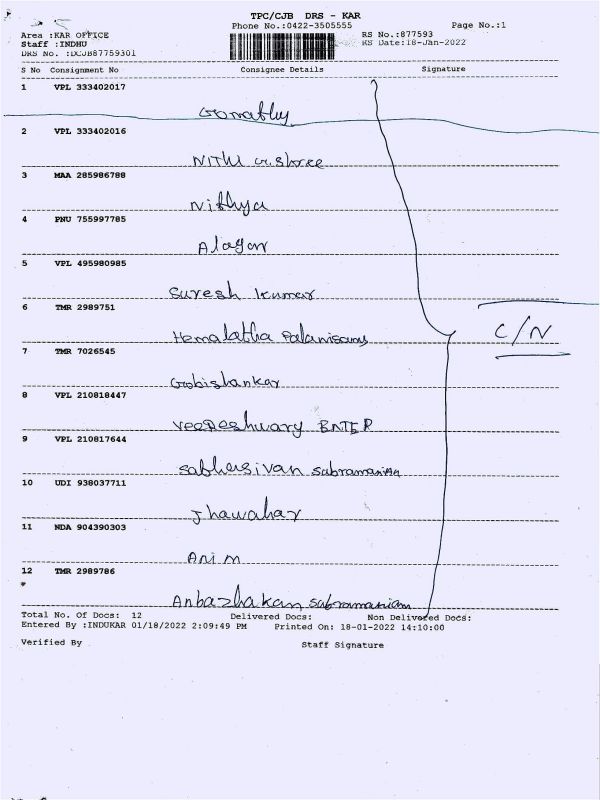 TPC/CJB DRS - KAR
Phone No.:0422-3505555 Page No.:1
Area :KAR OFFICE RS No.:877593
Staff :INDHU RS Date:18-Jan-2022
DRS No. :DCJB87759301
S No Consignment No Consignee Details Signature
1 VPL 333402017
Gomathy
2 VPL 333402016
3 MAA 285986788
Nithya
4 PNU 755997785
Alagan
5 VPL 495980985
Suresh kumar
6 TMR 2989751
C/N
Hemalatha Palanisamy
7 TMR 7026545
Gobishankar
8 VPL 210818447
9 VPL 210817644
Sabharisivan Subramanian
10 UDI 938037711
Jhawahar
11 NDA 904390303
12 TMR 2989786
Anbazhakan Subramaniam
Total No. Of Docs: 12 Delivered Docs: Non Delivered Docs:
Entered By :INDUKAR 01/18/2022 2:09:49 PM Printed On: 18-01-2022 14:10:00
Verified By Staff Signature